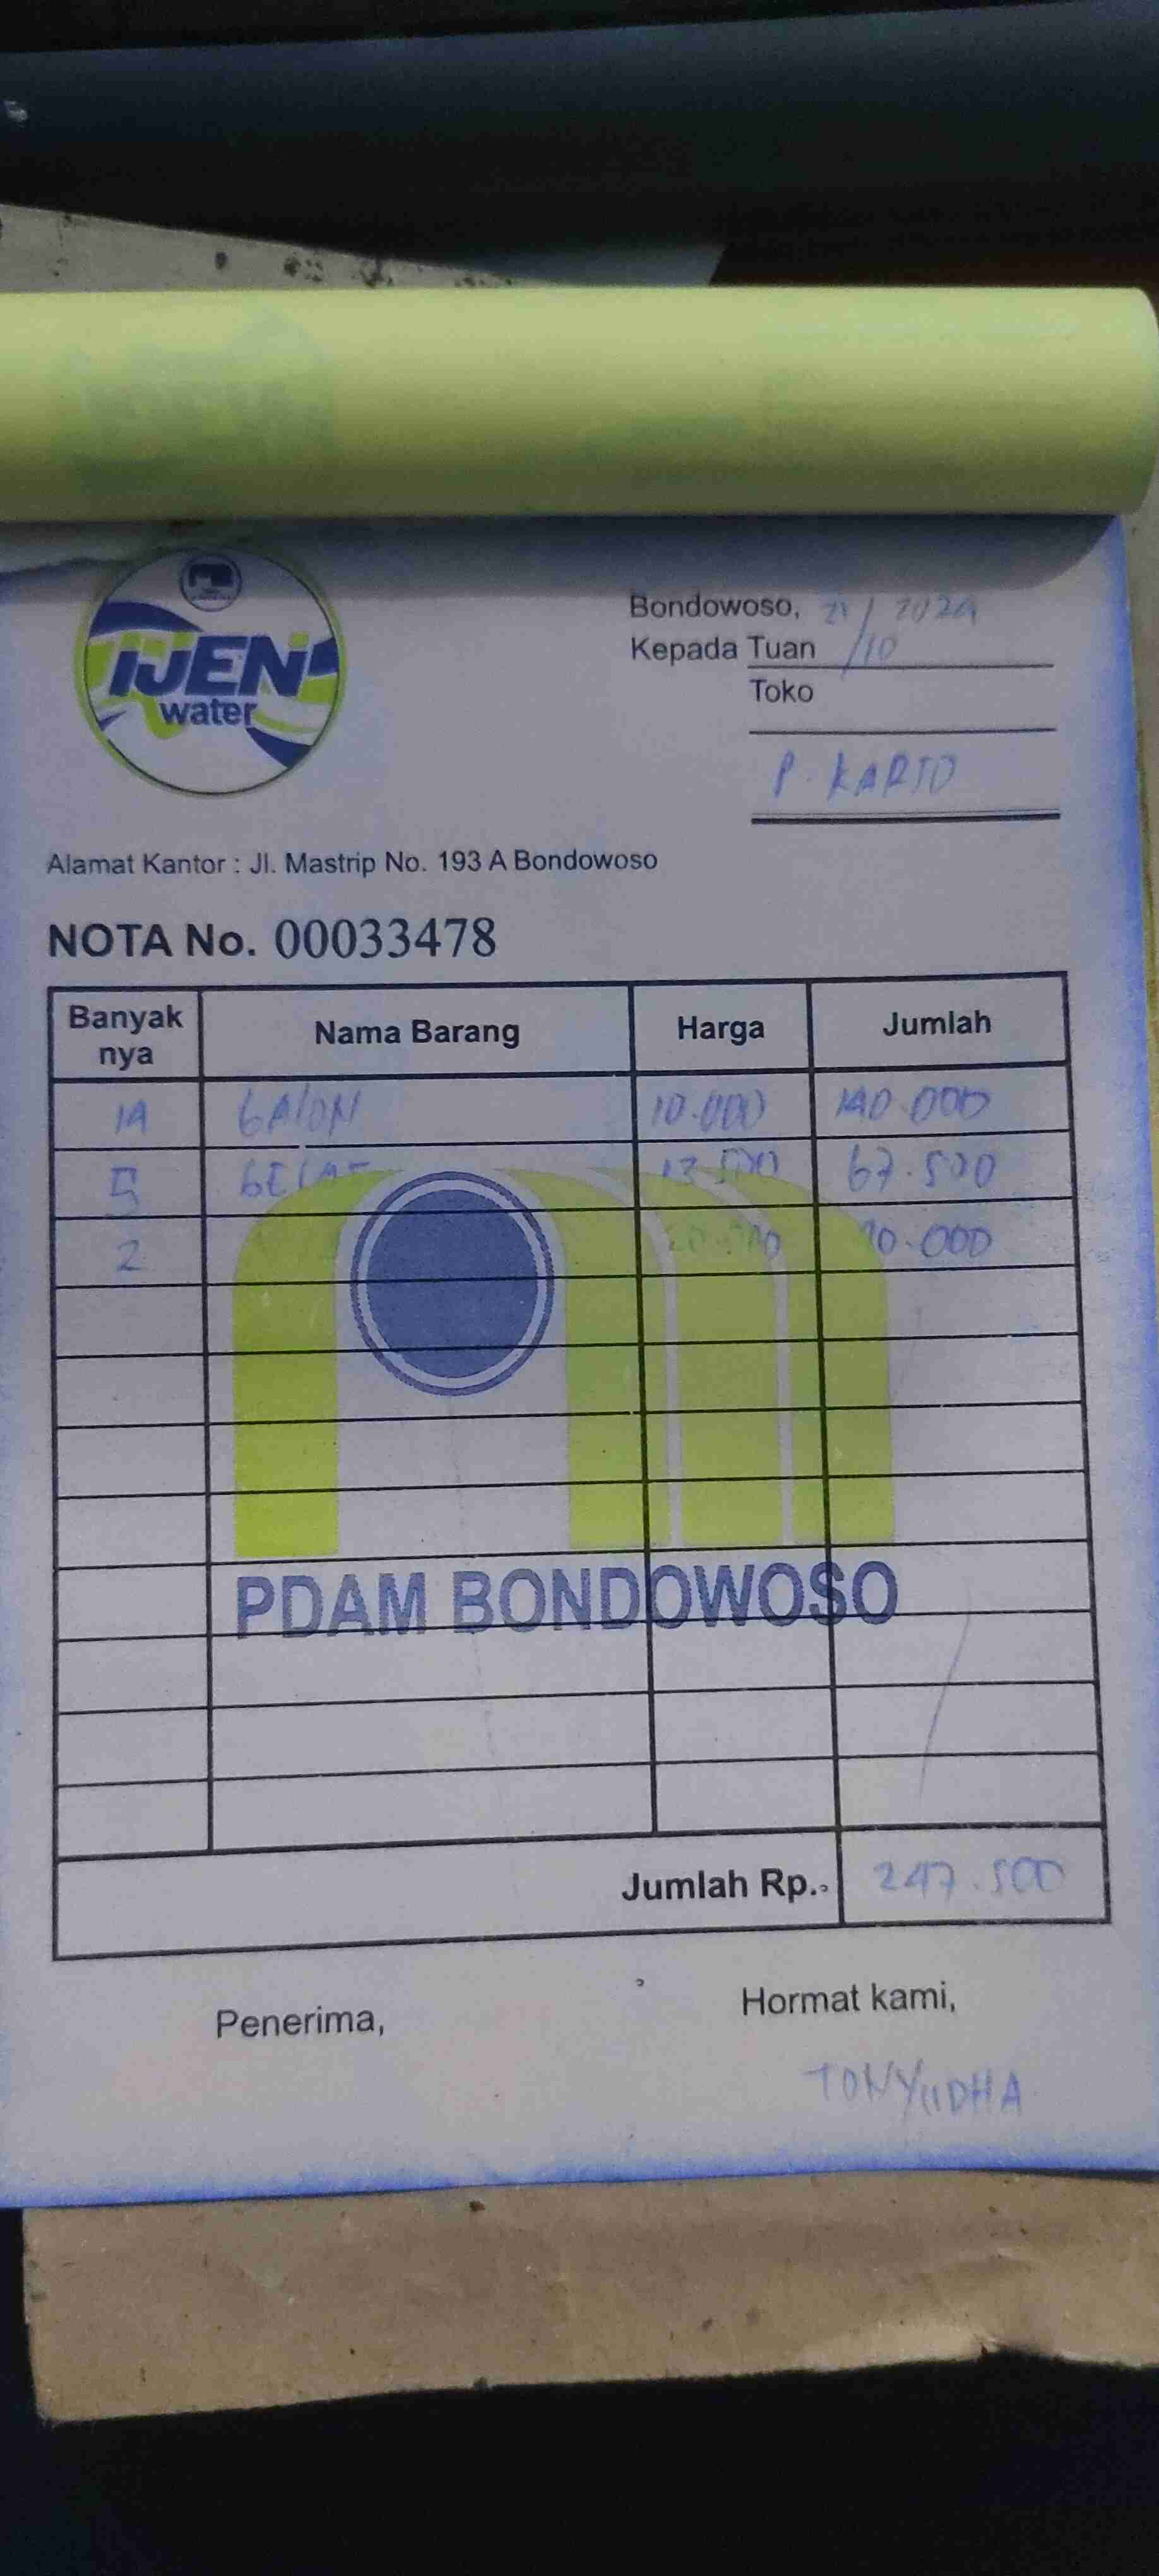 IJEN
water
Bondowoso, 21/10 2024
Kepada Tuan
Toko
P. KARTO
Alamat Kantor : Jl. Mastrip No. 193 A Bondowoso
NOTA No. 00033478
Banyak nya Nama Barang Harga Jumlah
14 GALON 10.000 140.000
5 GELAS 13.500 67.500
2 0.000
PDAM BONDOWOSO
Jumlah Rp. 247.500
Penerima, Hormat kami,
TONYUDHA